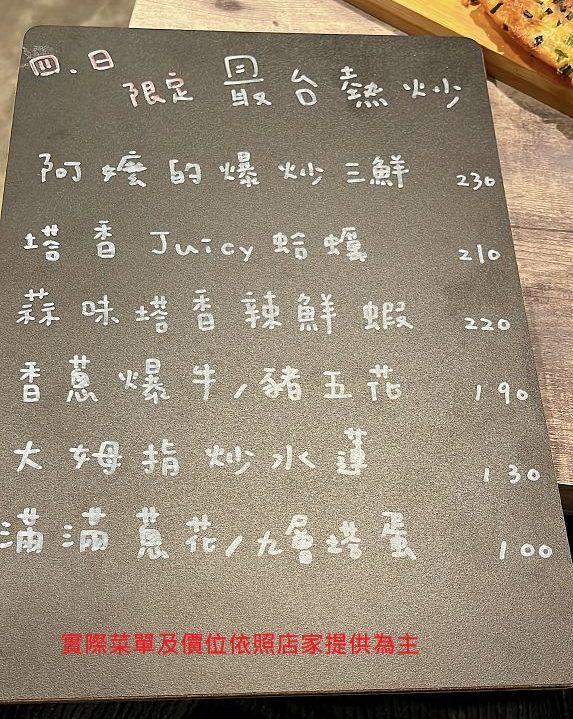 四.日
限定 最台熱炒
阿嬤的爆炒三鮮 230
塔香Juicy蛤蠣 210
蒜味塔香辣鮮蝦 220
香蔥爆牛/豬五花 190
大姆指炒水蓮 130
滿滿蔥花/九層塔蛋 100
實際菜單及價位依照店家提供為主